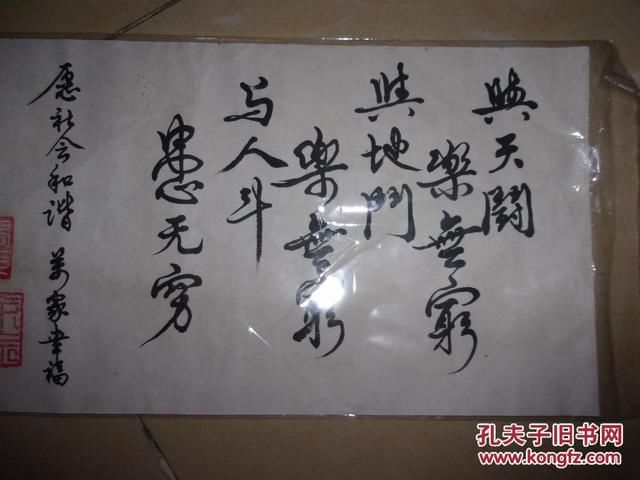 與天鬪
樂無窮
與地鬥
樂無窮
与人斗
患无穷
愿社会和谐 万家幸福
孔夫子旧书网
www.kongfz.com